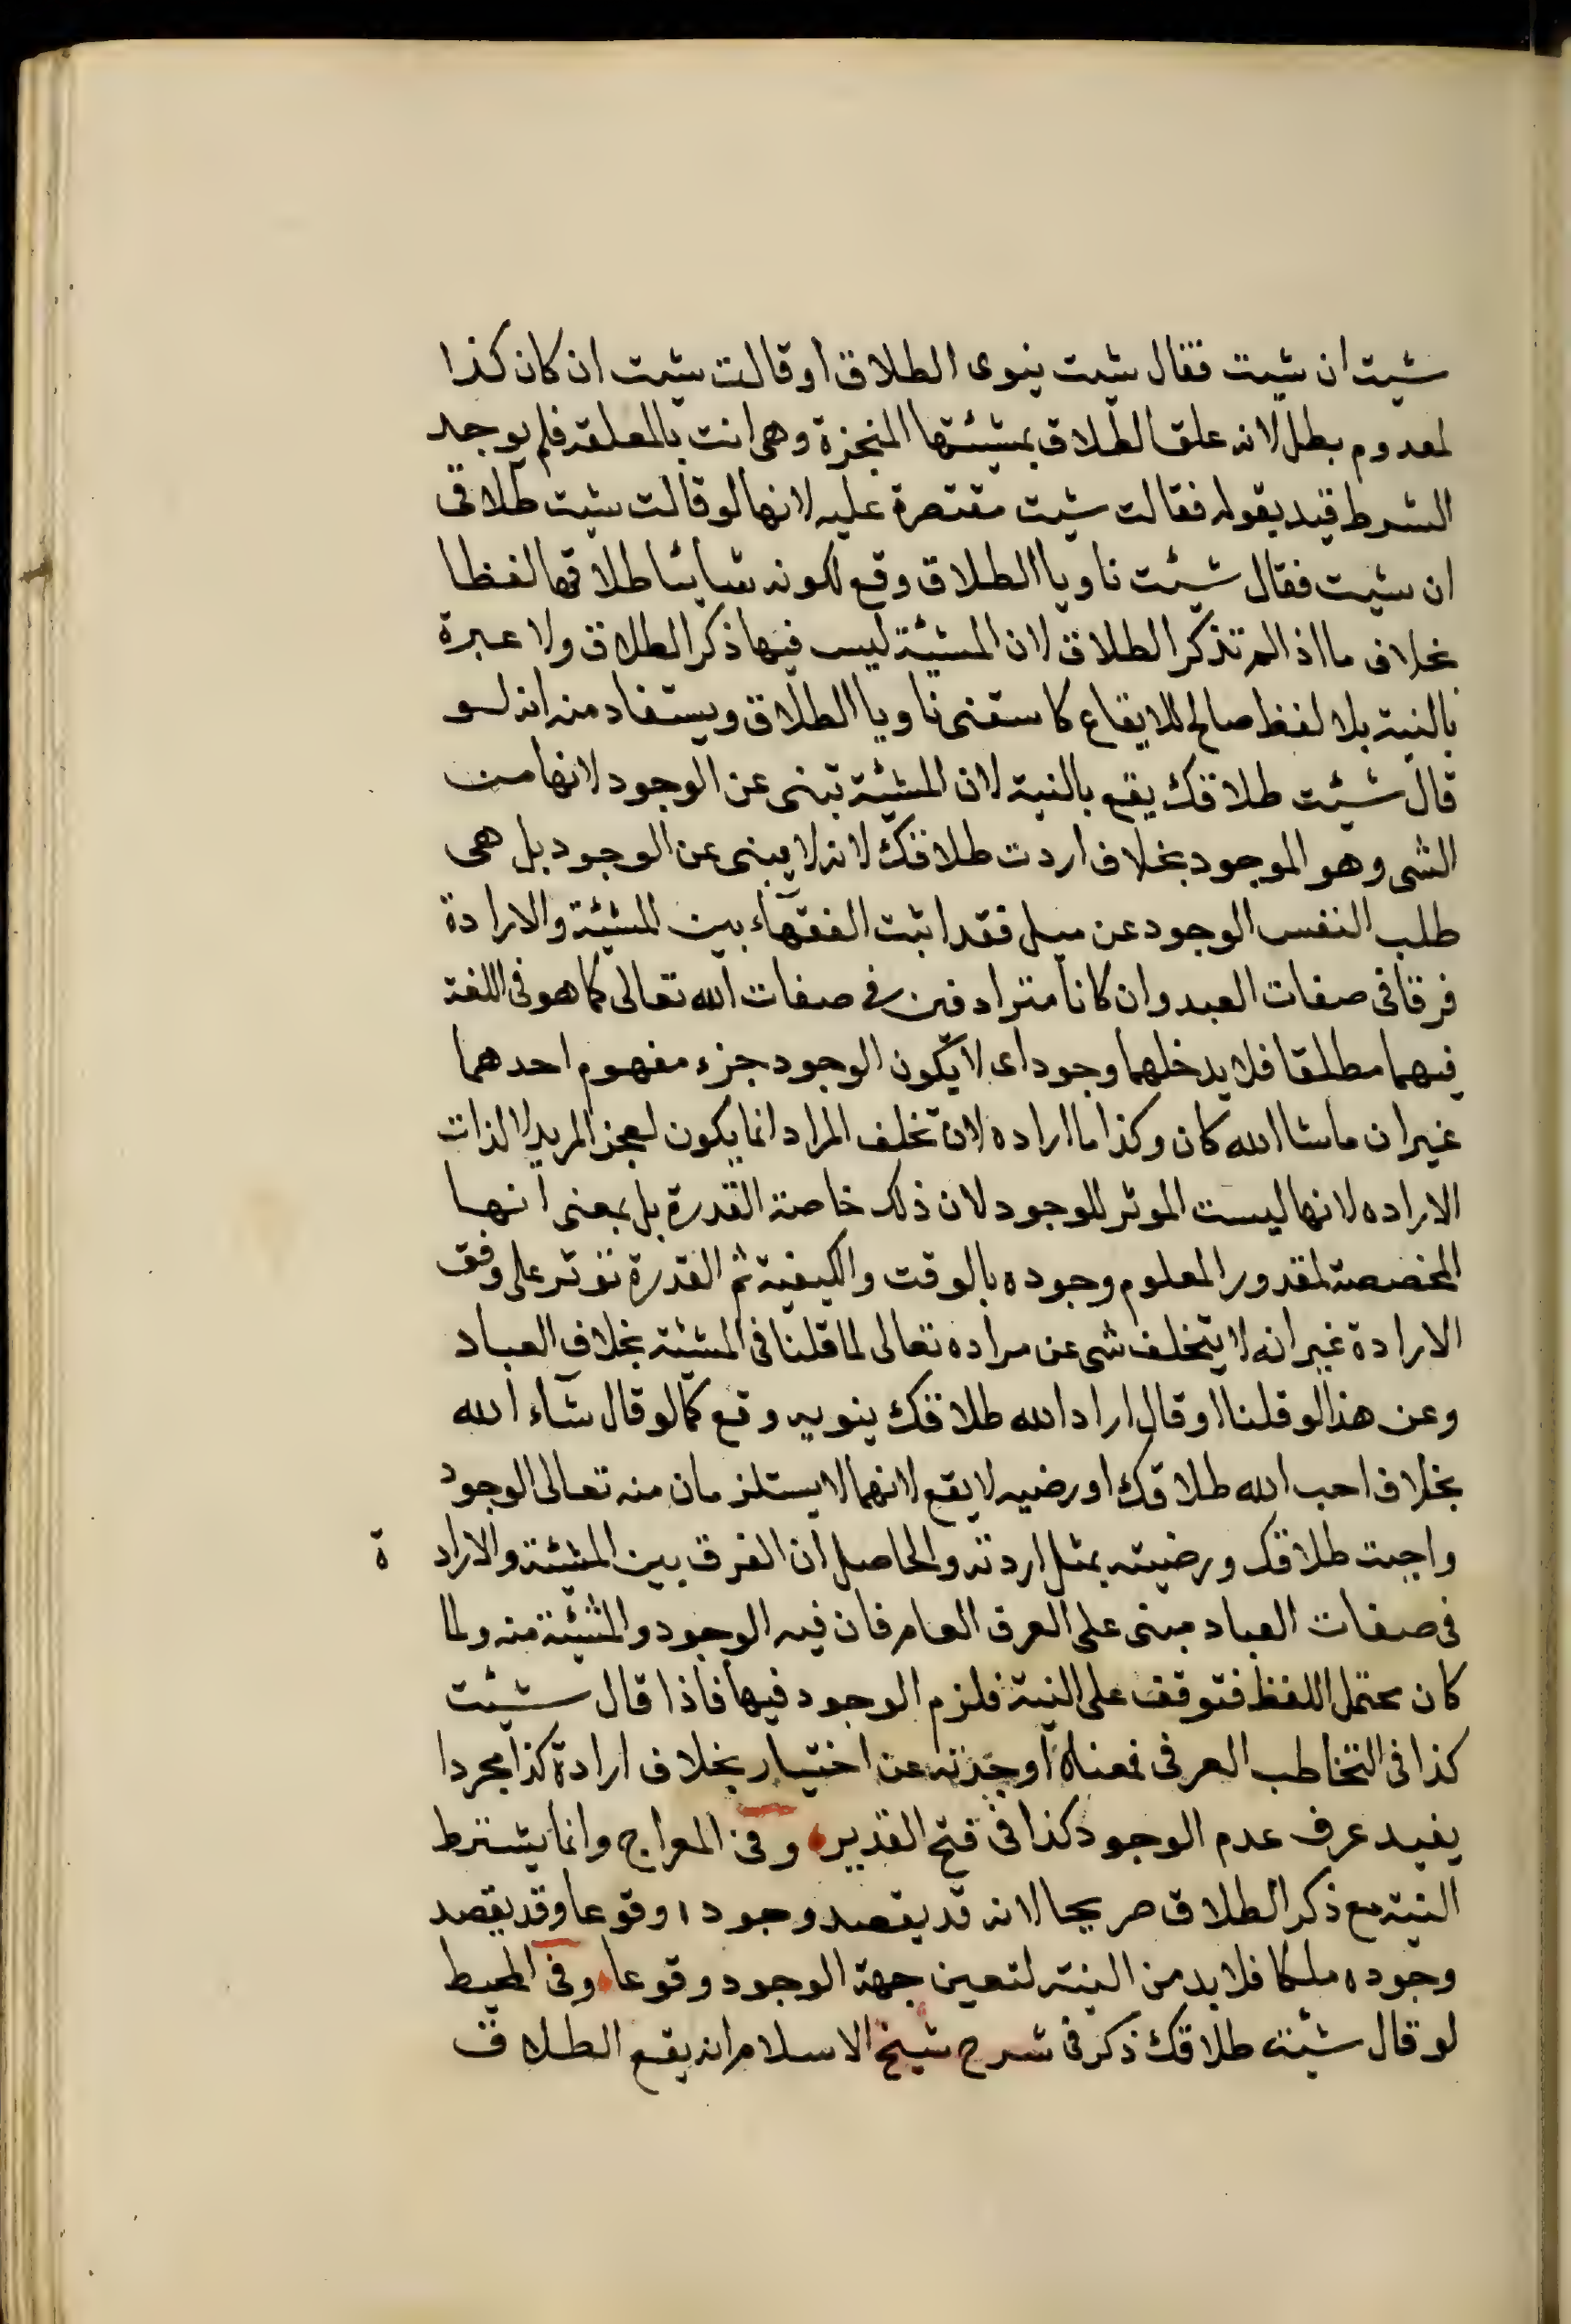 شيت ان شيت فقال شيت ينوى الطلاق او قالت شيت ان كان كذا
لمعدوم بطل لانه علق الطلاق بمشئتها المنجزة وهى اتت بالمعلقة فلم يوجد
الشرط قيد بقوله فقالت شيت مقتصرة عليه لانها لو قالت شيت طلاقى
ان شيت فقال شئت ناويا الطلاق وقع لكونه شايئا طلاقها لفظا
بخلاف ما اذا لم تذكر الطلاق لان المشيئة ليس فيها ذكر الطلاق ولا عبرة
بالنية بلا لفظ صالح للايقاع كاسقنى ناويا الطلاق ويستفاد منه انه لو
قال شئت طلاقك يقع بالنية لان المشئة تبنى عن الوجود لانها من
الشى وهو الموجود بخلاف اردت طلاقك لانه لا يبنى عن الوجود بل هى
طلب النفس الوجود عن ميل فقد اثبت الفقهآء بين المشئة والارادة
فرقا فى صفات العبد وان كانا مترادفين فى صفات الله تعالى كما هو فى اللغة
فيهما مطلقا فلا يدخلهما وجود اى لا يكون الوجود جزء مفهوم احدهما
غير ان ماشا الله كان وكذا ما اراده لان تخلف المراد انما يكون لعجز المريد لا لذات
الاراده لانها ليست الموثر للوجود لان ذلك خاصة القدرة بل بمعنى انها
المخصصة لمقدور المعلوم وجوده بالوقت والكيفية ثم القدرة توثر على وفق
الارادة غير انه لا يتخلف شى عن مراده تعالى لما قلنا فى المشئة بخلاف العباد
وعن هذا لو قلنا او قال اراد الله طلاقك ينويه وقع كما لو قال شآء الله
بخلاف احب الله طلاقك او رضيه لا يقع لانهما لا يستلزمان منه تعالى الوجود
واحببت طلاقك ورضيته بمثل اردته والحاصل ان الفرق بين المشئة والاراد ة
فى صفات العباد مبنى على العرف العام فان فيه الوجود والمشئة منه ولما
كان محتمل اللفظ فتوقف على النية فلزم الوجود فيها فاذا قال شئت
كذا فى التخاطب العرفى فمعناه اوجدته عن اختيار بخلاف ارادة كذا مجردا
يفيد عرف عدم الوجود كذا فى فتح القدير وفى المعراج وانما يشترط
النية مع ذكر الطلاق صريحا لانه قد يقصد وجوده وقوعا وقد يقصد
وجوده ملكا فلا بد من النية لتعين جهة الوجود وقوعا وفى المحيط
لو قال شئت طلاقك ذكر فى شرح شيخ الاسلام انه يقع الطلاق